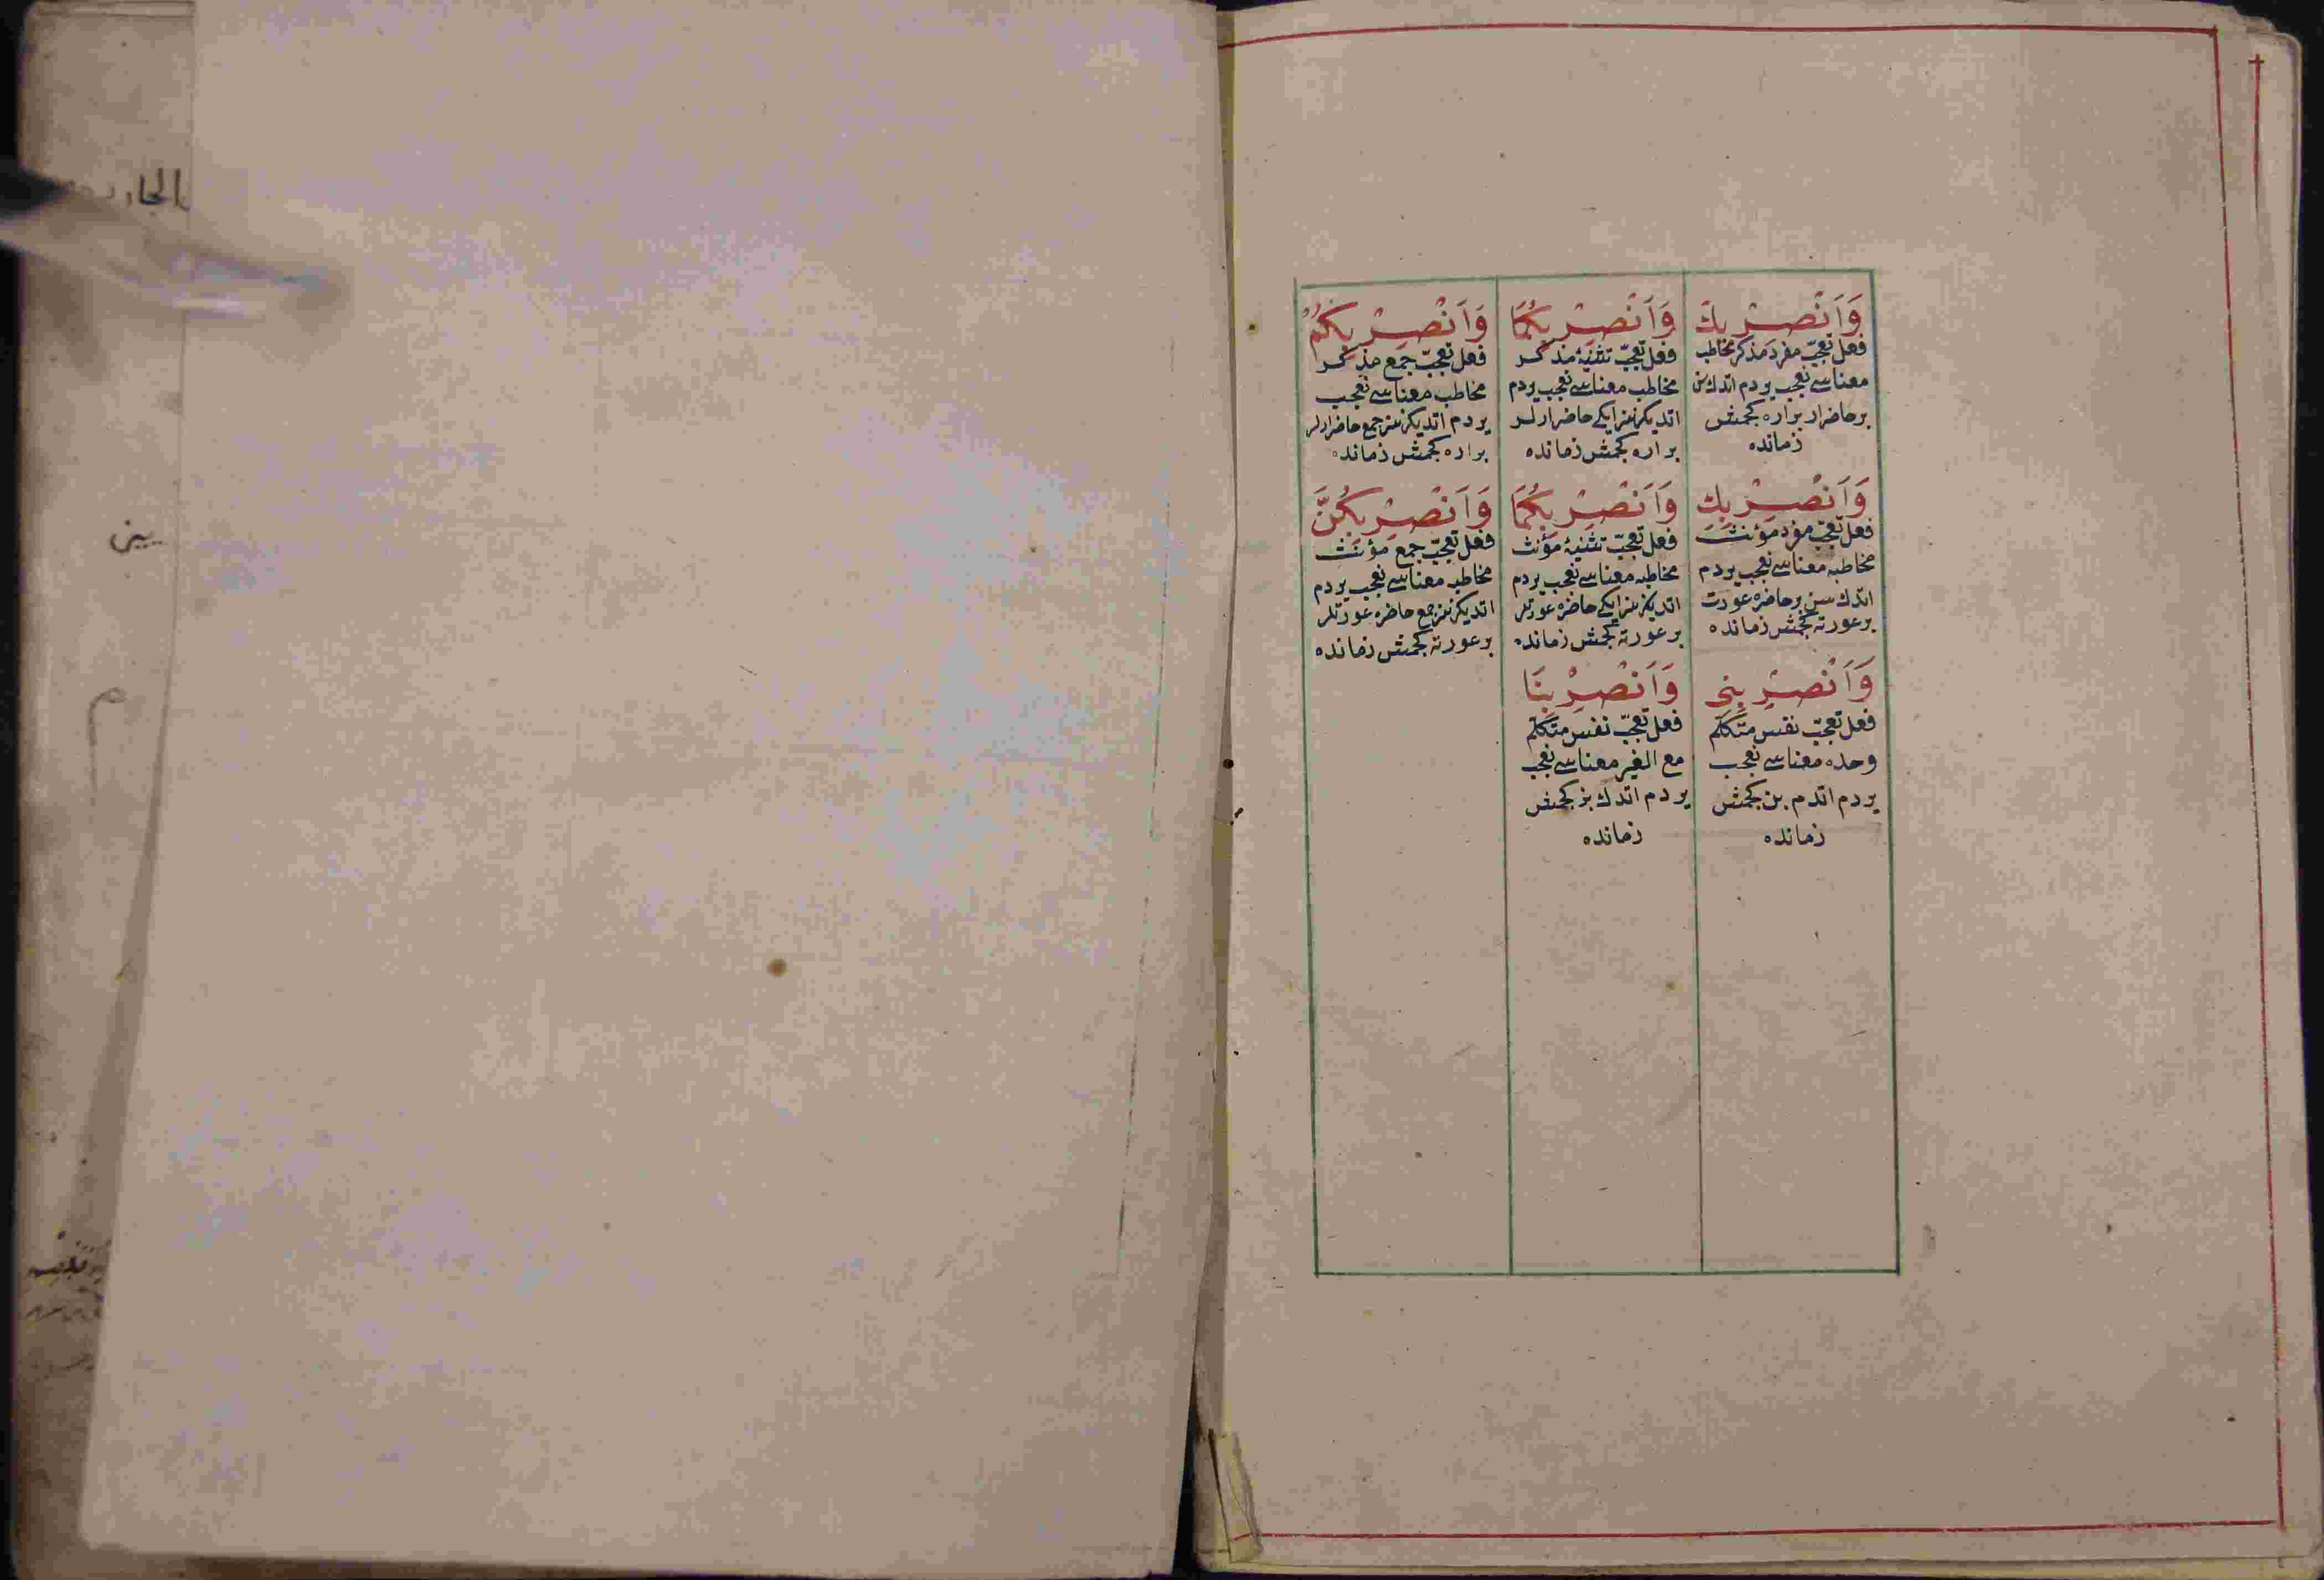 وَاَنْصِرْ بِكَ
فعل تعجّب مفرد مذكر مخاطب
معناسى تعجب يردم اتدك سن
بر حاضر ار براره كچمش
زمانده
وَاَنْصِرْ بِكُمَا
فعل تعجّب تثنيۀ مذكر
مخاطب معناسى تعجب يردم
اتديكز سز ايكى حاضر ارلر
براره كچمش زمانده
وَاَنْصِرْ بِكُمْ
فعل تعجّب جمع مذكر
مخاطب معناسى تعجب
يردم اتديكز سز جمع حاضر ارلر
براره كچمش زمانده
وَاَنْصِرْ بِكِ
فعل تعجّب مفرد مؤنث
مخاطبه معناسى تعجب يردم
اتدك سن بر حاضره عورت
بر عورته كچمش زمانده
وَاَنْصِرْ بِكُمَا
فعل تعجّب تثنيۀ مؤنث
مخاطبه معناسى تعجب يردم
اتديكز سز ايكى حاضره عورتلر
بر عورته كچمش زمانده
وَاَنْصِرْ بِكُنَّ
فعل تعجّب جمع مؤنث
مخاطبه معناسى تعجب يردم
اتديكز سز جمع حاضره عورتلر
بر عورته كچمش زمانده
وَاَنْصِرْ بِى
فعل تعجّب نفس متكلّم
وحده معناسى تعجب
يردم اتدم بن كچمش
زمانده
وَاَنْصِرْ بِنَا
فعل تعجّب نفس متكلّم
مع الغير معناسى تعجب
يردم اتدك بز كچمش
زمانده